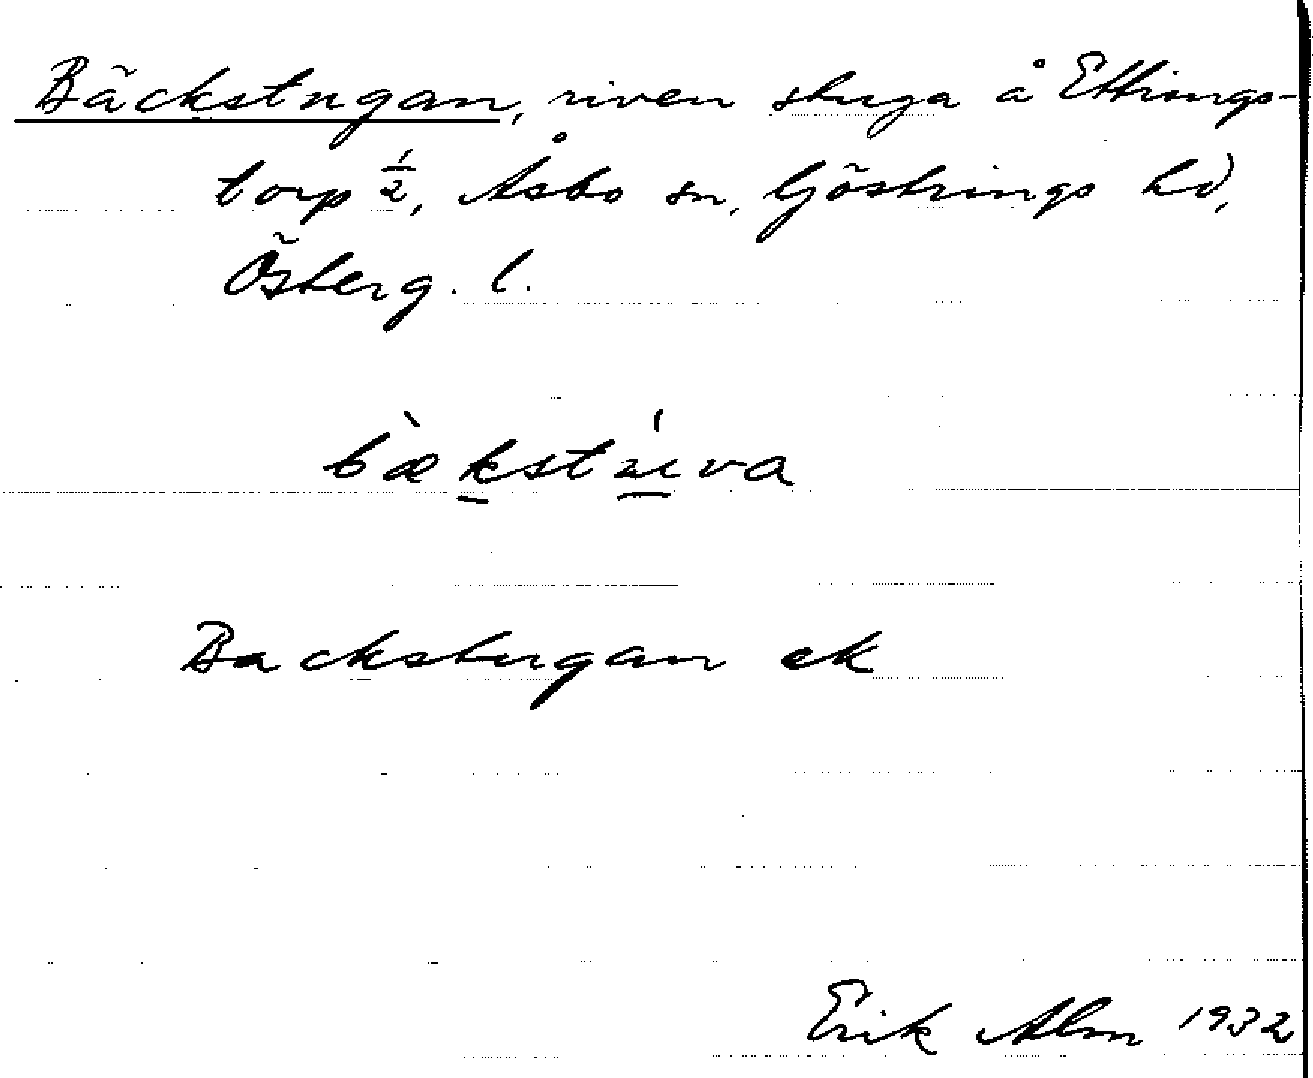 Bäckstugan, riven stuga å Ettings-
torp 1/2, Åsbo sn, Göstrings hd,
Österg. l.
bæ̀kstúva
Backstugan ek
Erik Alm 1932